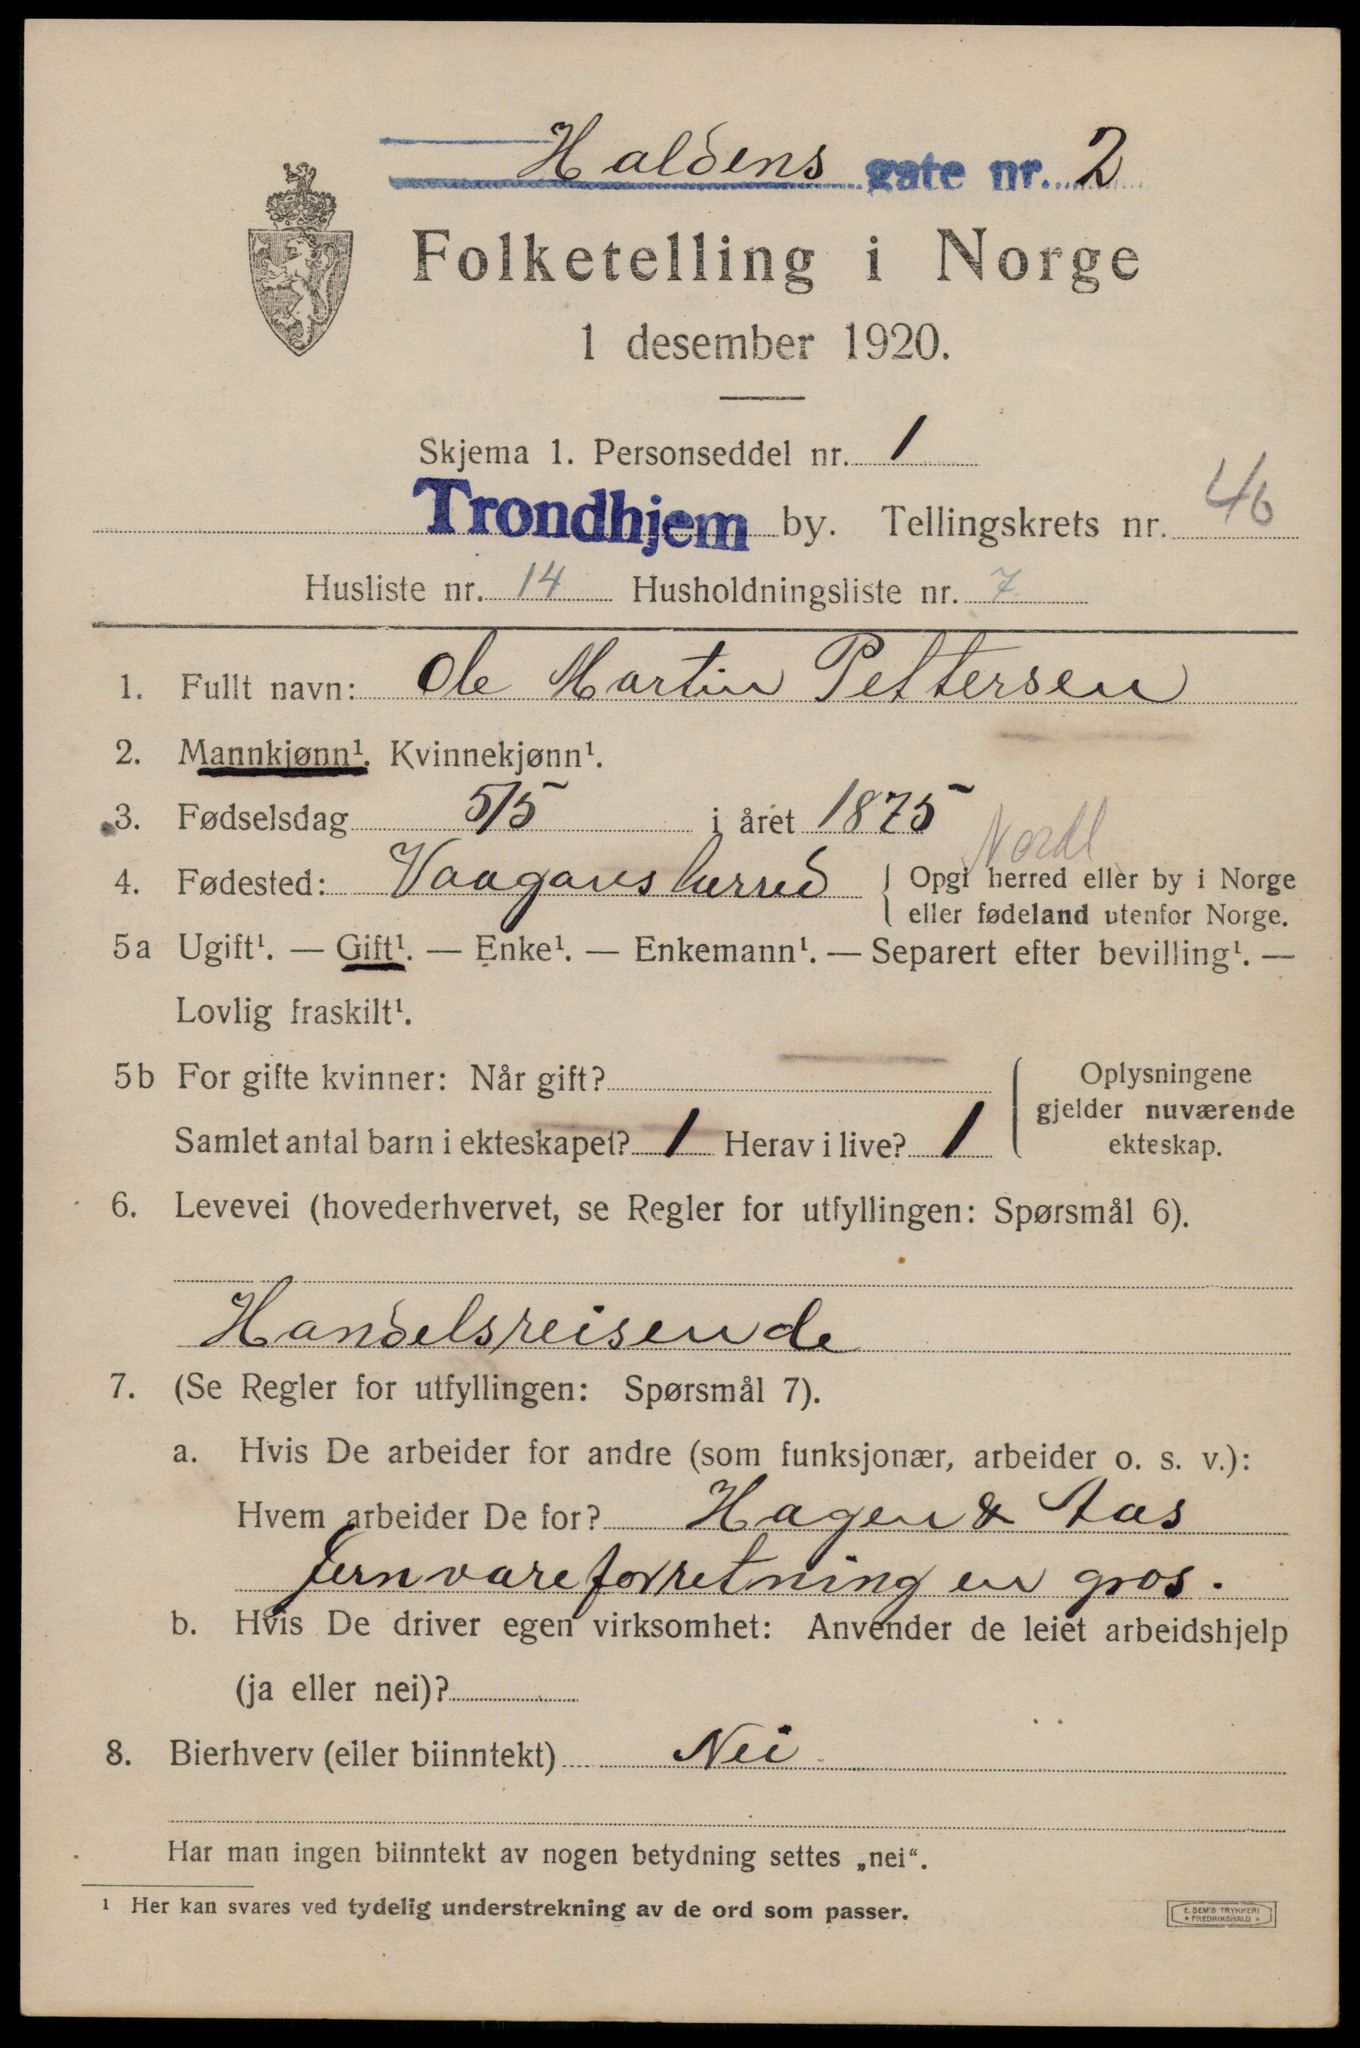 Haldens gate nr. 2
Folketelling i Norge
1 desember 1920.
Skjema 1. Personseddel nr. 1
Trondhjem by. Tellingskrets nr. 46
Husliste nr. 14 Husholdningsliste nr. 7
1. Fullt navn: Ole Martin Pettersen
2. Mannkjønn¹. Kvinnekjønn¹.
3. Fødselsdag 5/5 i året 1875
Nordl
4. Fødested: Vaagans herred { Opgi herred eller by i Norge
eller fødeland utenfor Norge.
5a Ugift¹. — Gift¹. — Enke¹. — Enkemann¹. — Separert efter bevilling¹. —
Lovlig fraskilt¹.
5b For gifte kvinner: Når gift?
Samlet antal barn i ekteskapet? 1 Herav i live? 1
Oplysningene
gjelder nuværende
ekteskap.
6. Levevei (hovederhvervet, se Regler for utfyllingen: Spørsmål 6).
Handelsreisende
7. (Se Regler for utfyllingen: Spørsmål 7).
a. Hvis De arbeider for andre (som funksjonær, arbeider o. s. v.):
Hvem arbeider De for? Hagen & Aas
Jernvareforretning en gros.
b. Hvis De driver egen virksomhet: Anvender de leiet arbeidshjelp
(ja eller nei)?
8. Bierhverv (eller biinntekt) Nei
Har man ingen biinntekt av nogen betydning settes „nei“.
¹ Her kan svares ved tydelig understrekning av de ord som passer.
E. SEM'S TRYKKERI
* FREDRIKSHALD *